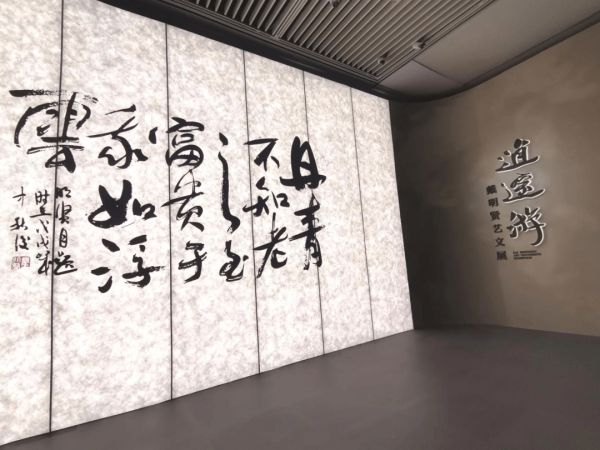 丹青
不知老
将至
富贵于
我如浮
雲
逍遥游
戴明贤艺文展